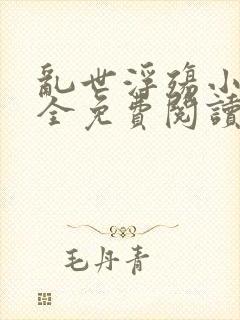 亂世浮殤小
全免費閱讀
毛丹青